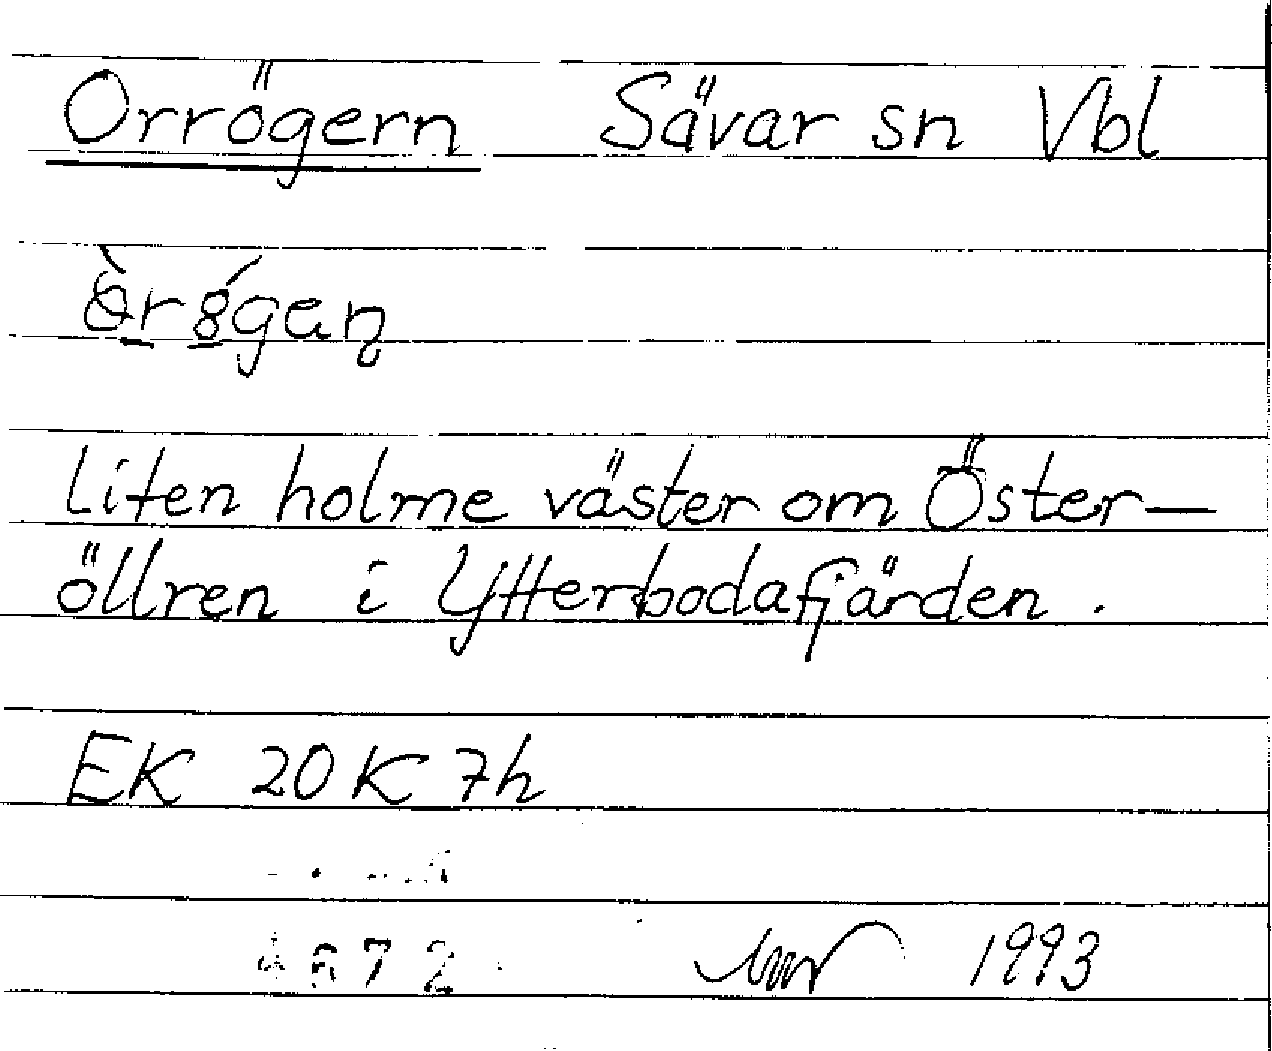 Orrögern Sävar sn Vbl
Liten holme väster om Öster-
öllren i Ytterbodafjärden.
EK 20K 7h
1993